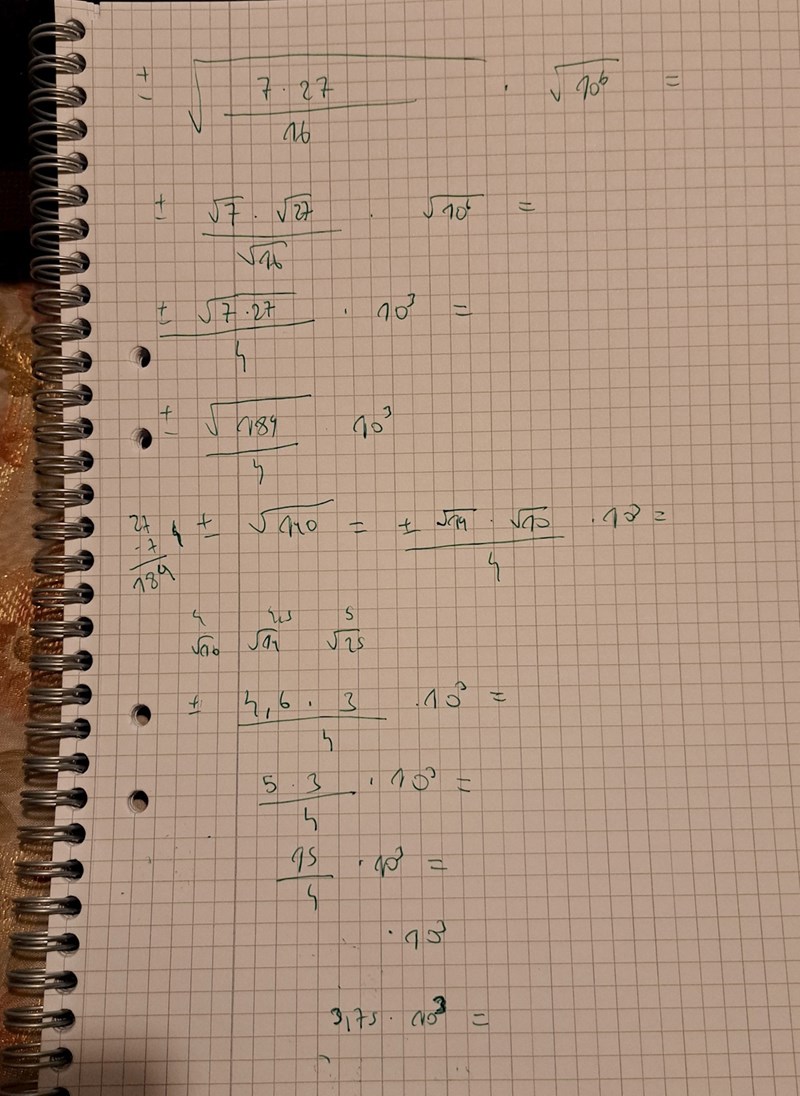 ± √(7·27 / 16) · √10⁶ =
± (√7 · √27) / √16 · √10⁶ =
± √(7·27) / 4 · 10³ =
± √184 / 4 10³
27 ·7 184 4 ± √140 = ± (√14 · √10) / 4 · 10³ =
4 4,5 5
√16 √19 √25
± (4,6 · 3) / 4 · 10³ =
(5 · 3) / 4 · 10³ =
15 / 4 · 10³ =
· 10³
3,75 · 10³ =